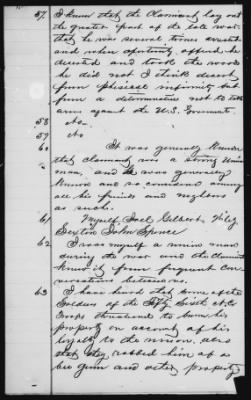 57 I know that the Claimant lay out
the greater part of the late war
that he was several times arrested
and when opertunity afford he
deserted and took the woods
he did not I think desert
from phisicale infirmity but
from a determination not to take
arms against the U.S. Goverment.
58 No
59 No
60 It was generly known
that claimant was a strong Union
man, and he was generaly
known and so considered among
all his friends and neighbors
as such.
61 Myself Joel Gilbert, Wiley
Sexton John Spence
62 I was myself a union man
during the war and the claimant
knew it from frequent con
versations between us.
63 I have heard that some of the
Soldiers of the Fifty Sixth N.C.
Troops threatened to burn his
property on account of his
loyalty to the union, also
that they robbed him of a
bee gum and other property